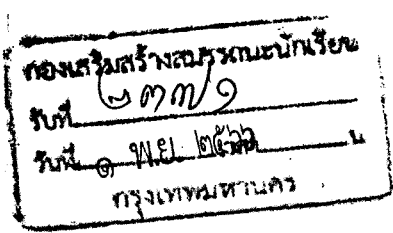 กองเสริมสร้างสมรรถนะนักเรียน
รับที่ ๒๓๓๑
วันที่ ๑ พ.ย. ๒๕๖๖ น
กรุงเทพมหานคร